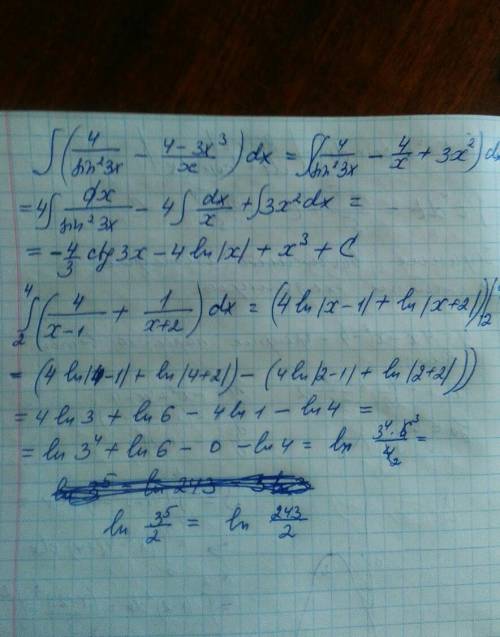 ∫(4/sin²3x − (4−3x³)/x)dx = ∫(4/sin²3x − 4/x + 3x²)d
= 4∫dx/sin²3x − 4∫dx/x + ∫3x²dx =
= −4/3 ctg3x − 4ln|x| + x³ + C
⁴∫₂(4/(x−1) + 1/(x+2))dx = (4ln|x−1| + ln|x+2|)|₂
= (4ln|4−1| + ln|4+2|) − (4ln|2−1| + ln|2+2|))
= 4ln3 + ln6 − 4ln1 − ln4 =
= ln3⁴ + ln6 − 0 − ln4 = ln (3⁴·6³)/4₂ =
ln 3⁵/2 = ln 243/2